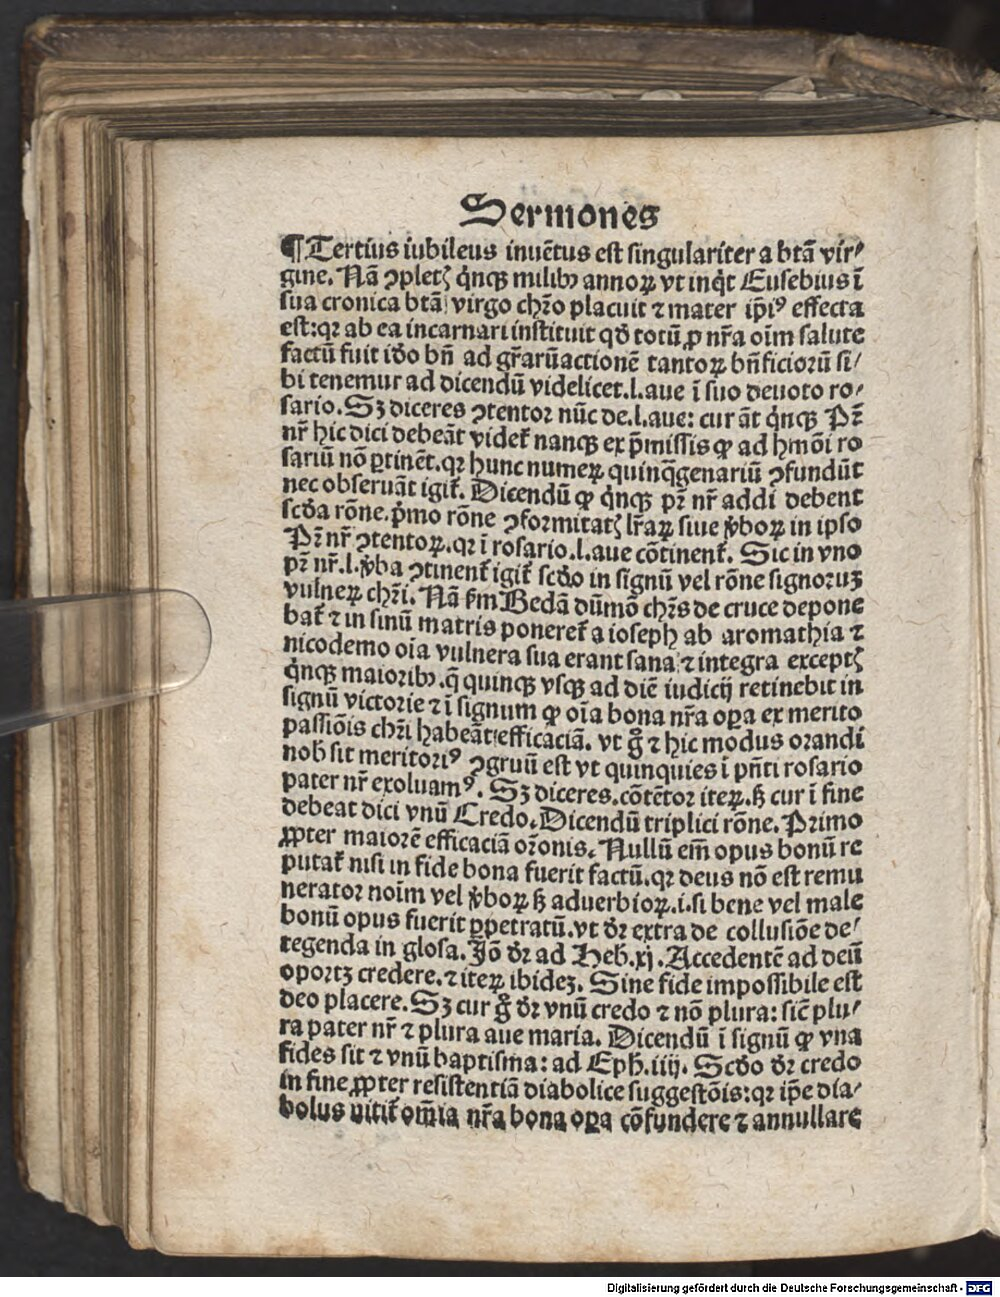 Sermones
¶Tertius iubileus inuētus est singulariter a btā vir⸗
gine. Nā ꝯpletꝭ q̇nqꝫ milibꝰ annoꝝ vt inq̇t Eusebius ī
sua cronica btā virgo chr̄o placuit ⁊ mater ip̄iꝰ effecta
est:qꝛ ab ea incarnari instituit qđ totū ꝓ nr̄a oīm salute
factū fuit iđo bn̄ ad gr̄arūactionē tantoꝝ bn̄ficioꝛū si⸗
bi tenemur ad dicendū videlicet.l.aue ī suo deuoto ro⸗
sario. Sꝫ diceres ꝯtentoꝛ nūc de.l.aue: cur āt q̇nqꝫ Pr̄
nr̄ hic dici debeāt videt᷑ nanqꝫ ex p̄missis ꝙ ad hmōi ro
sariū nō ꝑtinēt.qꝛ hunc numeꝝ quinq̄genariū ꝯfundūt
nec obseruāt igit᷑. Dicendū ꝙ q̇nqꝫ pr̄ nr̄ addi debent
scđa rōne. ṗmo rōne ꝯformitatꝭ lr̄aꝝ siue v̓boꝝ in ipso
Pr̄ nr̄ ꝯtentoꝝ.qꝛ ī rosario.l.aue cōtinent᷑. Sic in vno
pr̄ nr̄.l.v̓ba ꝯtinent᷑ igit᷑ scđo in signū vel rōne signoꝛuꝫ
vulneꝝ chr̄i. Nā ẜm Bedā dūmō chr̄s de cruce depone
bat᷑ ⁊ in sinū matris poneret᷑ a ioseph ab aromathia ⁊
nicodemo oīa vulnera sua erant sana ⁊ integra exceptꝭ
q̇nqꝫ maioꝛibꝰ.q̄ quinqꝫ vsqꝫ ad diē iudicij retinebit in
signū victoꝛie ⁊ ī signum ꝙ oīa bona nr̄a oꝑa ex merito
passiōis chr̄i habeāt efficaciā. vt g̊ ⁊ hic modus oꝛandi
nob̄ sit meritoꝛiꝰ ꝯgruū est vt quinquies ī pn̄ti rosario
pater nr̄ exoluamꝰ. Sꝫ diceres.cōtētoꝛ iteꝝ.ꝭ cur ī fine
debeat dici vnū Credo. Dicendū triplici rōne. Primo
ꝓpter maioꝛē efficaciā oꝛōnis. Nullū em̄ opus bonū re
putat᷑ nisi in fide bona fuerit factū.qꝛ deus nō est remu
neratoꝛ noīm vel v̓boꝝ ẜ aduerbioꝝ.i.si bene vel male
bonū opus fuerit ꝑpetratū.vt đꝛ extra de collusiōe de⸗
tegenda in glosa. Jō đꝛ ad Heb.xj. Accedentē ad deū
opoꝛtꝫ credere.⁊ iteꝝ ibideꝫ. Sine fide impossibile est
deo placere. Sꝫ cur g̊ đꝛ vnū credo ⁊ nō plura: sic̄ plu⸗
ra pater nr̄ ⁊ plura aue maria. Dicendū ī signū ꝙ vna
fides sit ⁊ vnū baptisma: ad Eph.iiij. Scđo đꝛ credo
in fine ꝓpter resistentiā diabolice suggestōis:qꝛ ip̄e dia⸗
bolus nitit᷑ om̄ia nr̄a bona oꝑa cōfundere ⁊ annullare
Digitalisierung gefördert durch die Deutsche Forschungsgemeinschaft - DFG